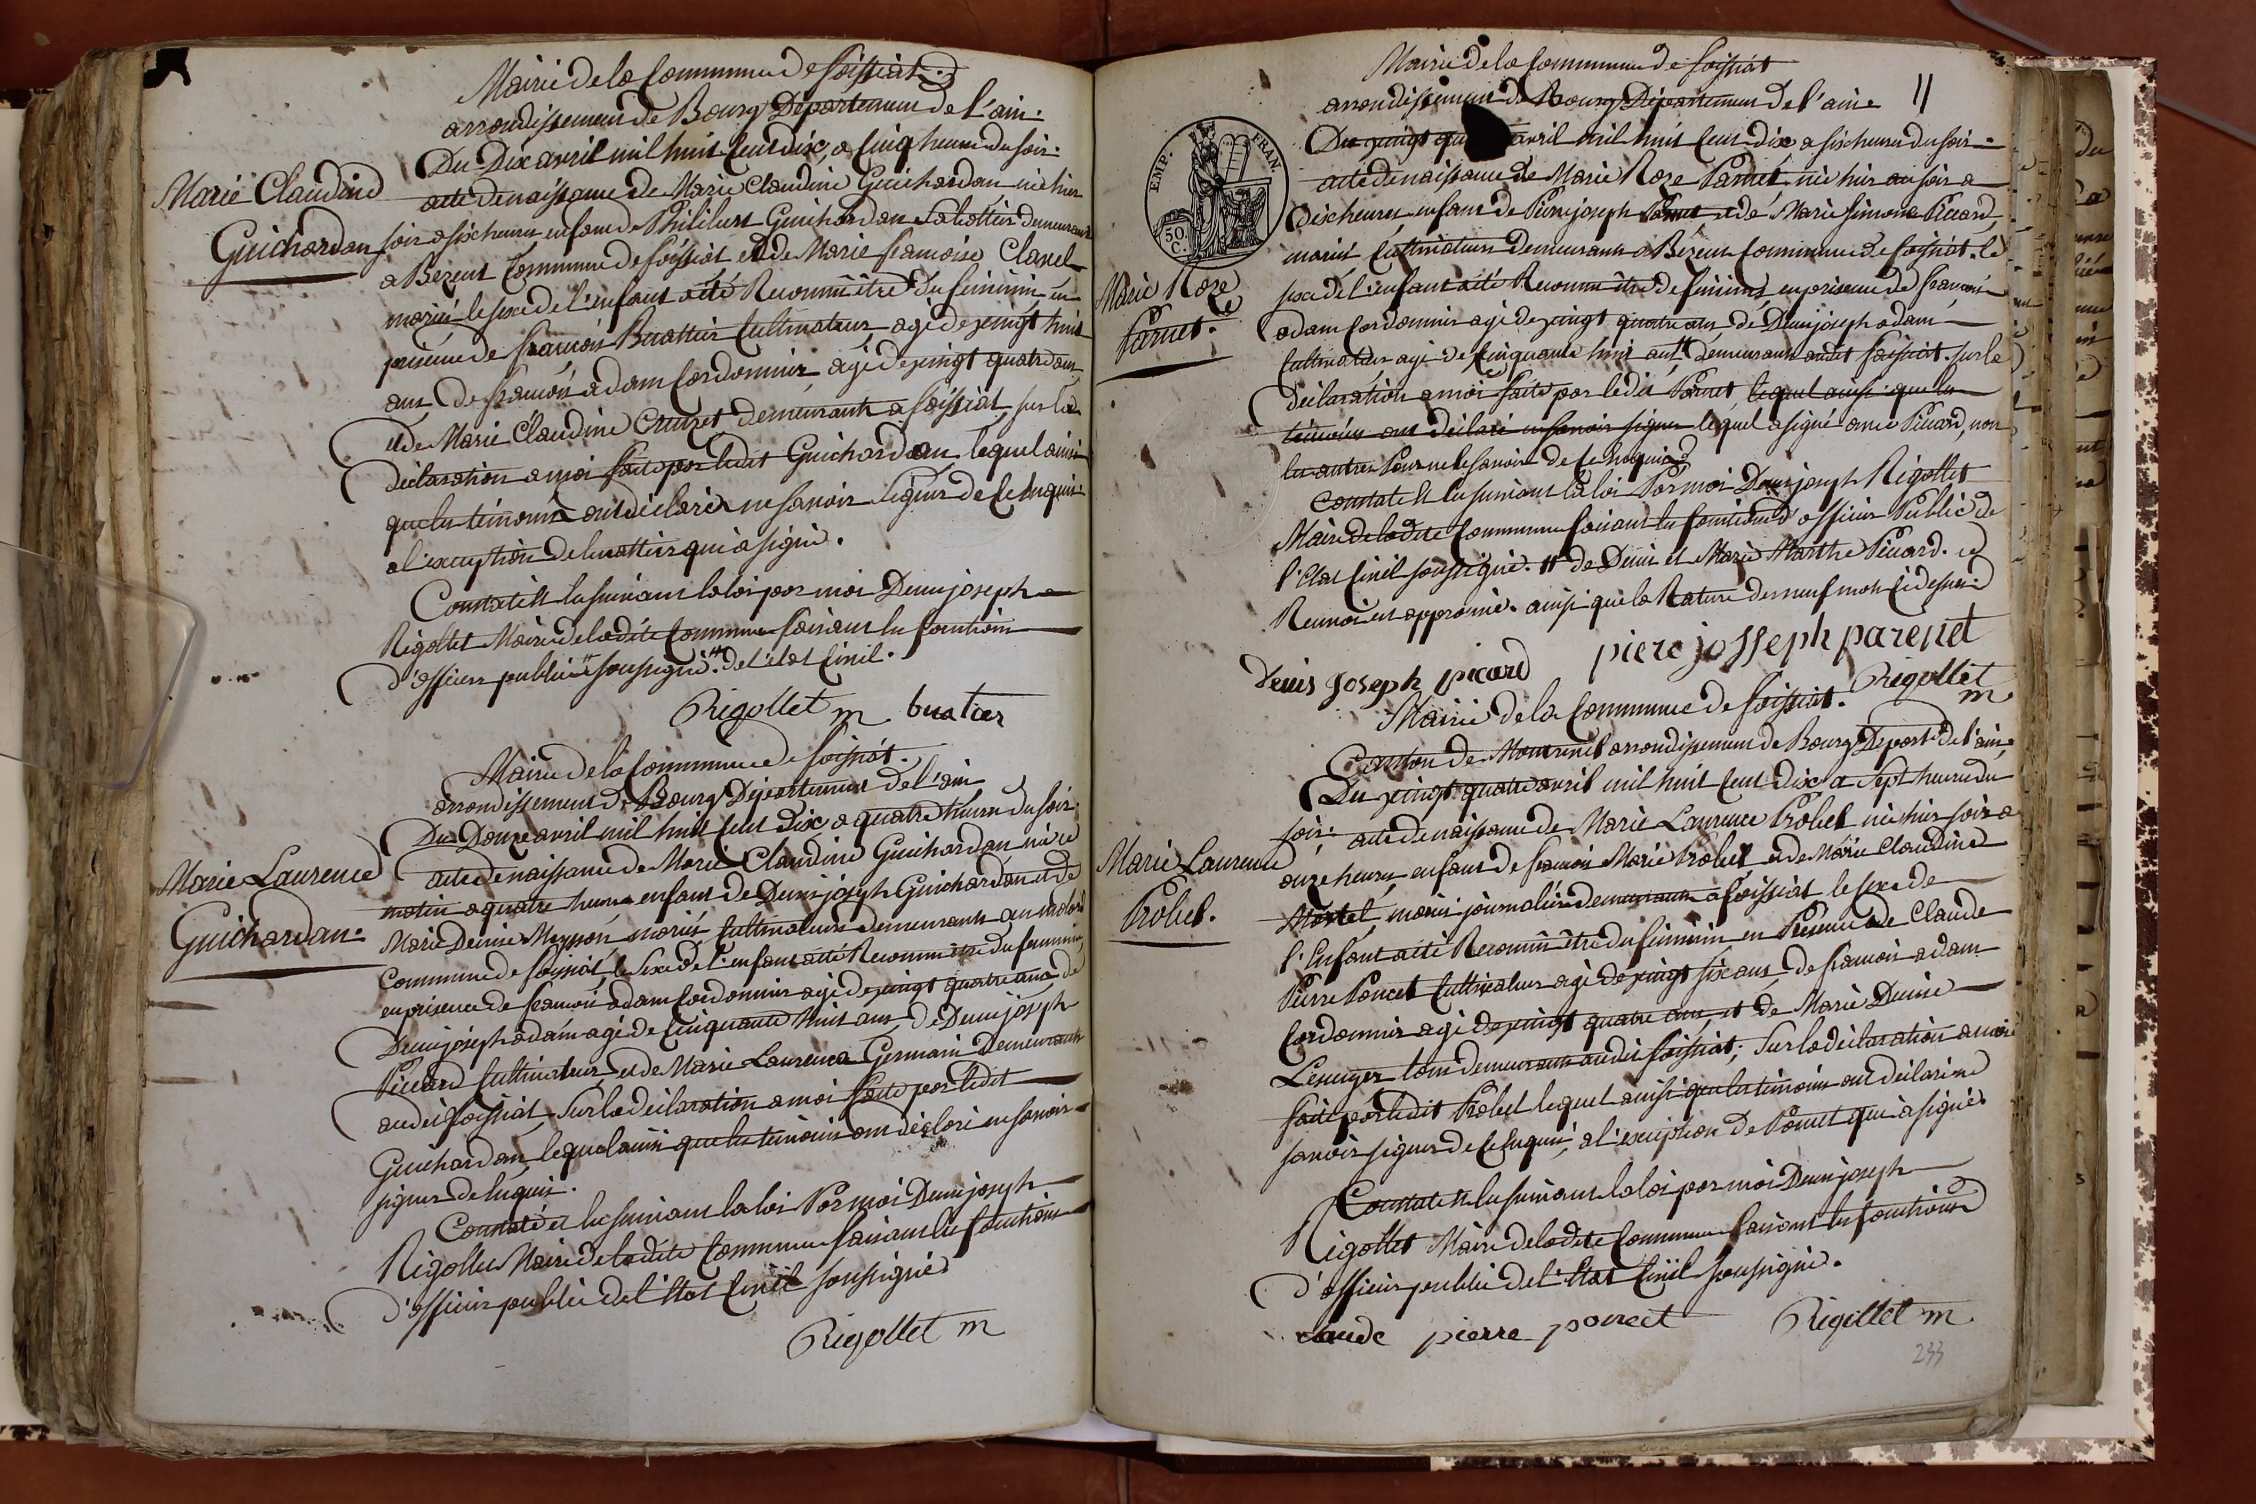 Mairie de la Commune de foissiat.
arrondissement de Bourg Département de l'ain.
Du Dix avril mil huit Cent dix, a Cinq heures du soir.
Marie Claudine
Guichardan
acte de naissance de Marie Claudine Guichardan née hier
soir a six heures enfant de Philibert Guichardan Sabottier demeurant
a Bezeut Commune de foissiat et de Marie francoise Clanel
mariés le sexe de l'enfant a été Reconnu être du feminin en
présence de francois Buattier Cultivateur agé de vingt huit
ans de francois adam Cordonnier agé de vingt quatre ans
et de Marie Claudine Cruzet demeurants a foissiat, sur la
déclaration a moi faite par ledit Guichardan lequel ainsi
que les témoins ont déclaré ne savoir signer de Ce enquis
a l'exception de buattier qui a signé.
Constaté et lu suivant la loi par moi Denis joseph
Rigollet Maire de la dite Commune faisant les fonctions
d'officier public soussigné de l'état Civil.
Rigollet m buatier
Mairie de la Commune de foissiat.
arrondissement de Bourg Département de l'ain
Du Douze avril mil huit Cent Dix a quatre heures du soir.
Marie Laurence
Guichardan.
acte de naissance de Marie Claudine Guichardan née ce
matin a quatre heures enfant de Denis joseph Guichardan et de
Marie Denise mariés Cultivateurs demeurants au
Commune de foissiat le sexe de l'enfant a été Reconnu être du feminin
en présence de francois adam Cordonnier agé de vingt quatre ans de
Denis joseph adam agé de Cinquante huit ans, de Denis joseph
Piccard Cultivateur et de Marie Laurence Germain Demeurants
audit foissiat, Sur la déclaration a moi faite par ledit
Guichardan, lequel ainsi que les témoins ont déclaré ne savoir
signer de enquis.
Constaté et lu suivant la loi Par moi Denis joseph
Rigollet Maire de la dite Commune faisant les fonctions
d'officier public de l'état Civil soussigné
Rigollet m
Mairie de la Commune de foissiat
11
arrondissement de Bourg Département de l'ain
EMP. FRAN.
50 C.
Du vingt avril mil huit Cent dix a six heures du soir.
acte de naissance de Marie Roze née hier au soir a
dix heures, enfant de Pierre joseph et de Marie Simone Piccard
mariés Cultivateurs demeurants a Bezeut Commune de foissiat. le
Marie Roze
sexe de l'enfant a été Reconnu être de feminin en présence de francois
adam Cordonnier agé de vingt quatre ans de Denis joseph adam
Cultivateur agé de Cinquante huit ans demeurants audit foissiat. sur la
déclaration a moi faite par le dit lequel ainsi que les
témoins ont déclaré ne savoir signer lequel a signé avec Piccard, non
les autres Pour ne le savoir de Ce enquis
Constaté et lu suivant la loi Par moi Denis joseph Rigollet
Maire de la dite Commune faisant les fonctions d'officier Public de
l'Etat Civil soussigné. de Denis et Marie Marthe Piccard. ce
Renvoi est approuvé. ainsi que la Rature de neuf mots Ci dessus
piere josseph parenet
denis joseph picard
Rigollet m
Mairie de la Commune de foissiat.
Canton de Montrevel arrondissement de Bourg Départ de l'ain
Du vingt quatre avril mil huit Cent dix a sept heures du
Marie Laurence
Probel.
soir. acte de naissance de Marie Laurence Probel née hier soir a
onze heures, enfant de francois Marie Probel et de Marie Claudine
mariés journaliers demeurants a foissiat le sexe de
l'Enfant a été Reconnu être du feminin en Présence de Claude
Pierre Poncet Cultivateur agé de vingt six ans, de francois adam
Cordonnier agé de vingt quatre ans, et de Marie Denise
tous demeurants audit foissiat; Sur la déclaration a moi
faite par ledit Probel lequel ainsi que les témoins ont déclaré ne
savoir signer de Ce enquis, a l'exception de Poncet qui a signé.
Constaté et lu suivant la loi par moi Denis joseph
Rigollet Maire de la dite Commune faisant les fonctions
d'officier public de l'Etat Civil soussigné.
claude pierre poncet Rigollet m
233